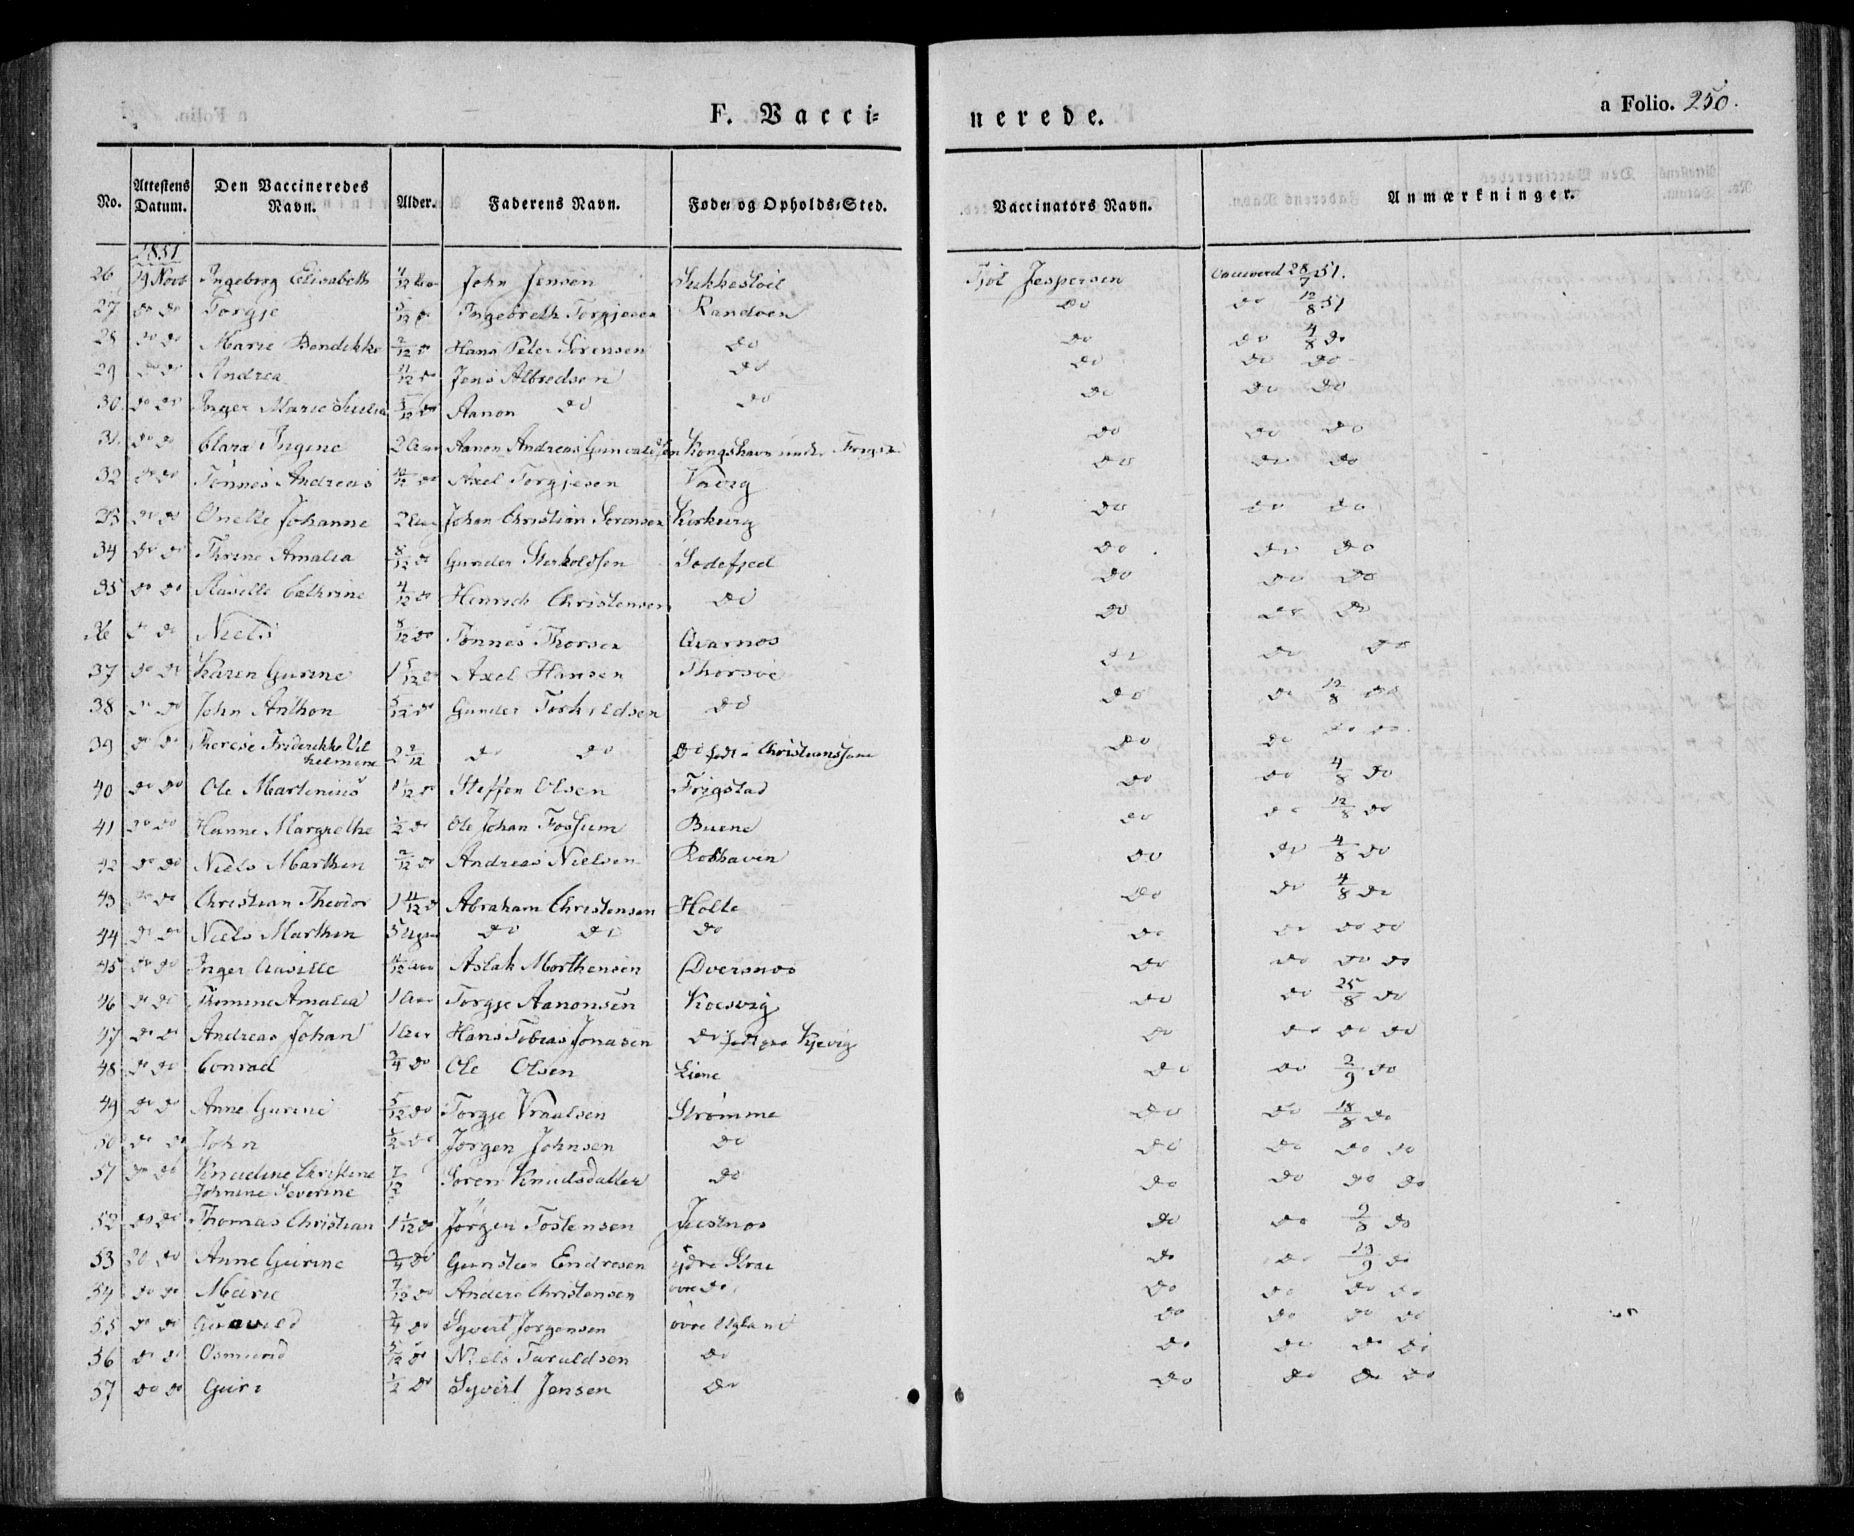 F. Vaccinerede. a Folio. 250.
No. Attestens Datum. Den Vaccineredes Navn. Alder. Faderens Navn. Føde- og Opholds-Sted. Vaccinators Navn. Anmærkninger.
1851
26 19 Novb Ingeborg Elisabeth John Jensen Jespersen 28/7 51.
27 do do Torgje 5/12 do Ingebreth Torgjesen Randøen do do 12/8 51
28 do do Marie Bendikke 2/12 do Hans Peter Sørensen do do do 4/8 do
29 do do Andrea 11/12 do Jens Albredsen do do do do
30 do do Inger Marie 5/12 do Aanon do do do do do
31 do do Clara Ingine 2 Aar Aanon Andreas Gunvaldsen Kongshavn under do do do
32 do do Tönnes Andreas do Axel Torgjesen Vrøig do do do
33 do do Onelle Johanne 2 Aar Johan Christian Sørensen Kirkevig do do do
34 do do Thrine Amalia 8/12 do Gunder Sodefjed do do do
35 do do Cathrine 4/12 do Henrich Christensen do do do do
36 do do Niels 8/12 do Tönnes Thorsen Qvarnes do do do
37 do do Karen Gurine 1 5/12 do Axel Hansen Thorsøe do do do
38 do do John Anthon 5/12 do Gunder Torkildsen do do do 12/8 do
39 do do Therese Friderikke Vil
helmine 2 2/12 do do do født i Christianssand do do do do
40 do do Ole Martinius 1 1/12 do Steffen Olsen Frigstad do do 4/8 do
41 do do Hanne Margrethe 1/2 do Ole Johan Fossum Buene do do 12/8 do
42 do do Niels Marthin 2/12 do Andreas Nielsen Robhaven do do 4/8 do
43 do do Christian Theodor 1 11/12 do Abraham Christensen Holte do do 4/8 do
44 do do Niels Marthin 5 Uger do do do do do do do
45 do do Inger Aasille Aar Aslak Morthensen Dversnes do do do do
46 do do Thomine Amalia 1 Aar Torgje Aanonsen Kosvig do do 25/8 do
47 do do Andreas Johan 1 Aar Hans Tobias Jonasen do født paa Kjevig do do do do
48 do do Conrad 3/4 do Ole Olsen Liene do do 2/9 do
49 do do Anne Gurine 5/12 do Torgje Vraalsen Strømme do do 18/8 do
50 do do John 1/2 do Jørgen Johnsen do do do do do
51 do do Knudine Christine
Johnine Severine 7/12 Søren Knudsdatter do do do do do
52 do do Thomas Christian 1 1/12 do Jørgen Tostensen Justnes do do 9/8 do
53 do do Anne Gurine 3/4 do Gunsten Endresen ydre Strai do do 19/9 do
54 do do Marie 7/12 do Anders Christensen øvre do do do do do
55 do do Gunvild 3/4 do Syvert Jørgensen øvre Ugland do do do do
56 do do Osmund 5/12 do Niels Taraldsen do do do do do
57 do do Guri 1/2 do Syvert Jensen do do do do do